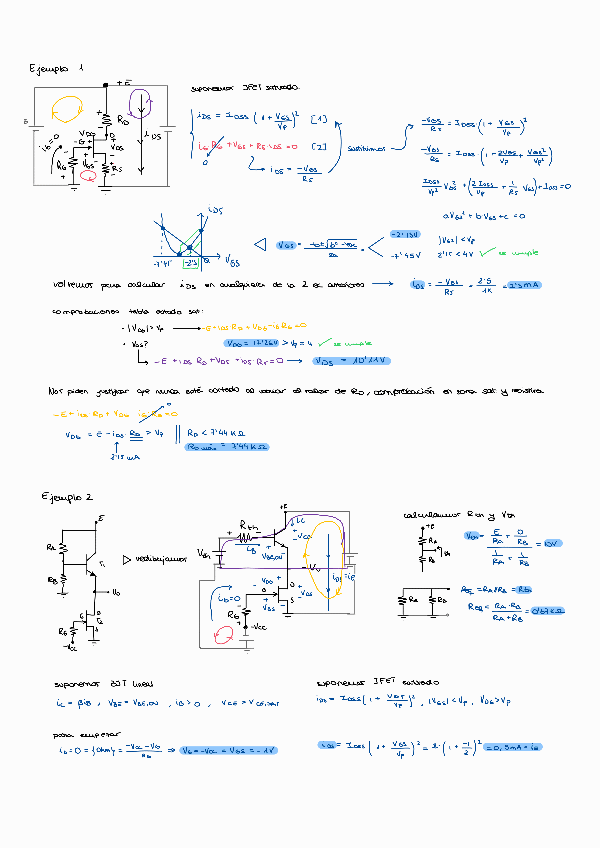 Ejemplo 1
+E
suponemos JFET saturado.
RD
iDS
iG=0
RG
RS
iDS = IDSS (1 + VGS/VP)² [1]
iG RG + VGS + RS·iDS = 0 [2]
0
iDS = -VGS/RS
sustituimos
-VGS/RS = IDSS·(1 + VGS/VP)²
-VGS/RS = IDSS·(1 + 2VGS/VP + VGS²/VP²)
IDSS/VP² VGS² + (2IDSS/VP + 1/RS) VGS + IDSS = 0
aVGS² + bVGS + c = 0
iDS
VGS
-7'45
-2'15
VGS =
-2'15V
-7'45V
|VGS| < VP
2'15 < 4V ✓ se cumple
volvemos para calcular iDS en cualquiera de la 2 ec anteriores → iDS = -VGS/RS = 2'15/1K = 2'15mA
comprobaciones
· |VDG| > VP → -E + iDS RD + VDG - iG RG = 0
· VDS?
VDG = 12'26V > VP = 4 ✓ se cumple
-E + iDS RD + VDS + iDS·RS = 0 → VDS = 10'11V
Nos piden justificar que nunca esté cortado al variar el valor de RD, comprobación en zona sat y
-E + iDS RD + VDG iG·RG = 0
0
VDG = E - iDS·RD > VP || RD < 7'44 KΩ
2'15 mA
RD máx = 7'44KΩ
Ejemplo 2
E
RA
RB
T1
V0
RG
-VCC
▷ redibujamos
+E
Rth
Vth
iC
iB
VCE
VBE,ON
V0
iDS = iE
iG=0
RG
-VCC
calculamos Rth y Vth
+E
RA
RB
Vth = (E/RA + 0/RB)/(1/RA + 1/RB) = 10V
RA
RB
REQ = RA//RB = Rth
REQ = RA·RB/(RA+RB) = 0'67KΩ
suponemos BJT lineal
iC = βiB, VBE = VBE,ON, iB > 0, VCE > VCE,SAT
suponemos JFET saturado
iDS = IDSS (1 + VGS/VP)², |VGS| < VP, VDG > VP
para empezar
iG = 0 = {Ohm} = (-VCC - VG)/RG ⇒ VG = -VCC = VGS = -1V
iDS = IDSS (1 + VGS/VP)² = 2·(1 + -1/2)² = 0,5mA = iE